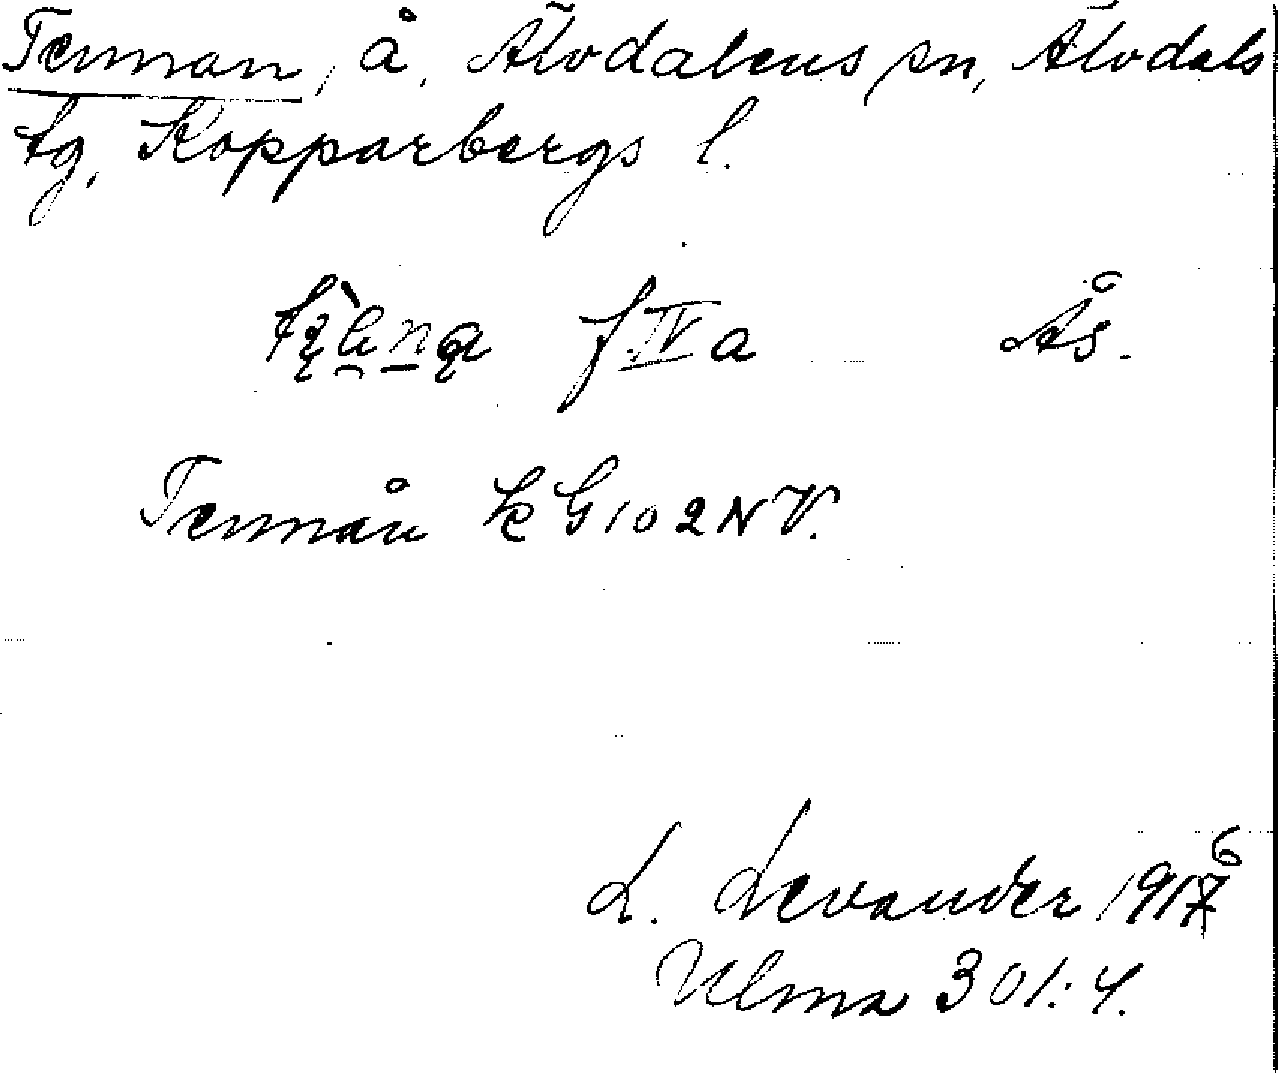 Tennan, å, Älvdalens sn, Älvdals
tg, Kopparbergs l.
f. IV a Ås.
Tennån k G 102 NV.
L. Levander 1916
Ulma 301:4.